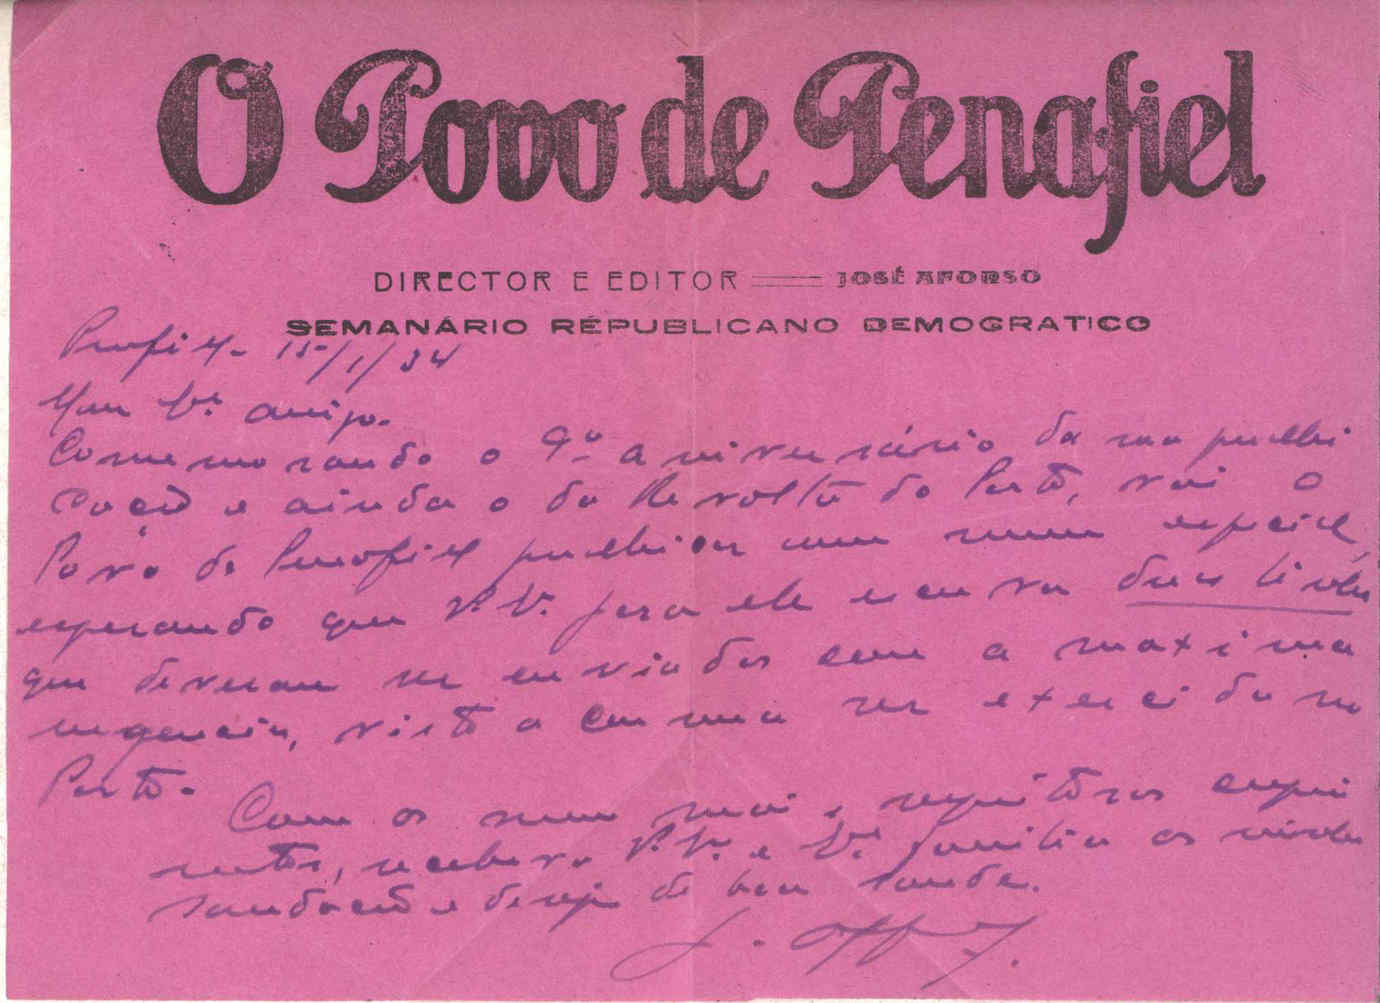 O Povo de Penafiel
DIRECTOR E EDITOR JOSÉ AFONSO
SEMANÁRIO REPUBLICANO DEMOCRATICO
Penafiel - 15/1/34
Meu amigo.
Comemorando o 9º aniversário da sua publi
cação e ainda o da Revolta do Porto, vai o
Povo de Penafiel publicar um num especial,
esperando que V. para ele escreva duas linhas
que deveram ser enviadas com a maxima
urgencia, visto a censura ser exercida no
Porto.
Com os meus mais respeitosos cumpri
mentos, receba V. e família os
saudação e desejo de boa saude.
J. Afonso.